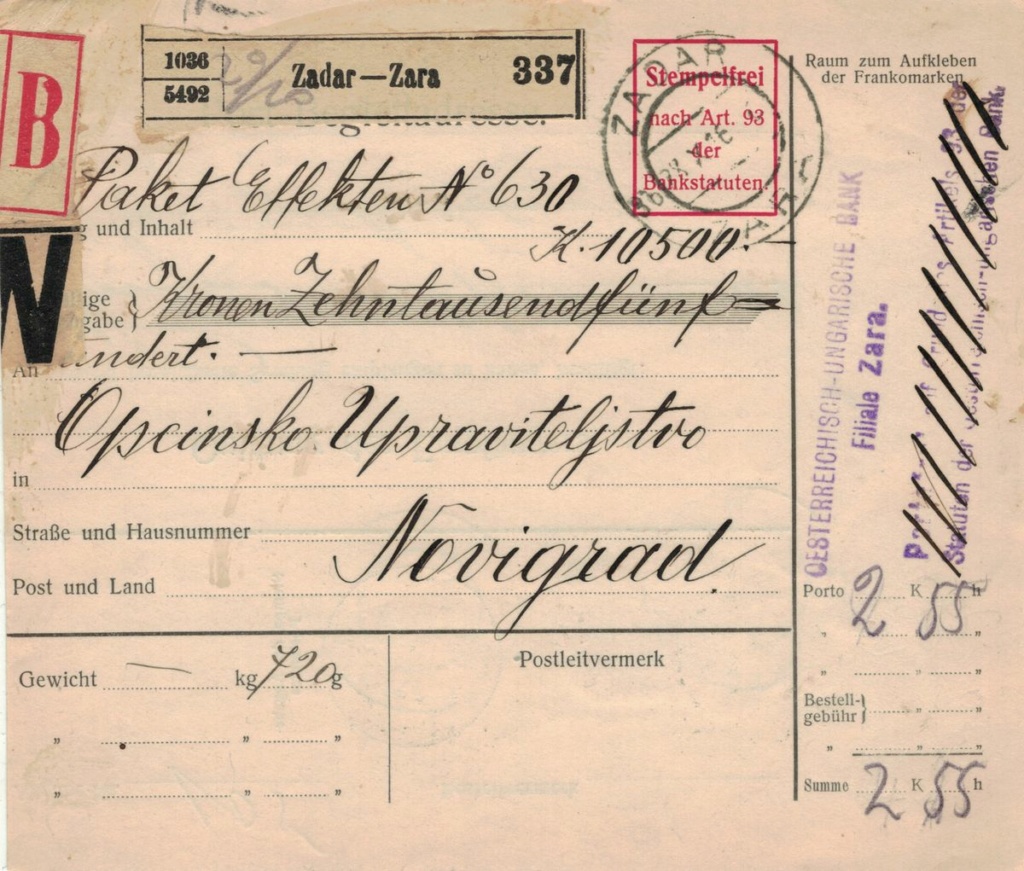 B
1036
5492
Zadar—Zara
337
Stempelfrei
nach Art. 93
der
Bankstatuten
ZADAR
ZARA
Raum zum Aufkleben
der Frankomarken
Paket Effekten No 630
und Inhalt
K. 10500.—
Kronen Zehntausendfünf
hundert. —
An
Opcinsko Upraviteljstvo
in
Straße und Hausnummer
Novigrad
Post und Land
OESTERREICHISCH-UNGARISCHE BANK
Filiale Zara.
Artikels 93 der
Statuten der Oesterreichisch-ungarischen Bank.
Porto 2 K 55 h
" " "
" " "
Bestell-
gebühr} " "
" " "
Summe 2 K 55 h
Gewicht — kg 720 g
" " "
" " "
Postleitvermerk